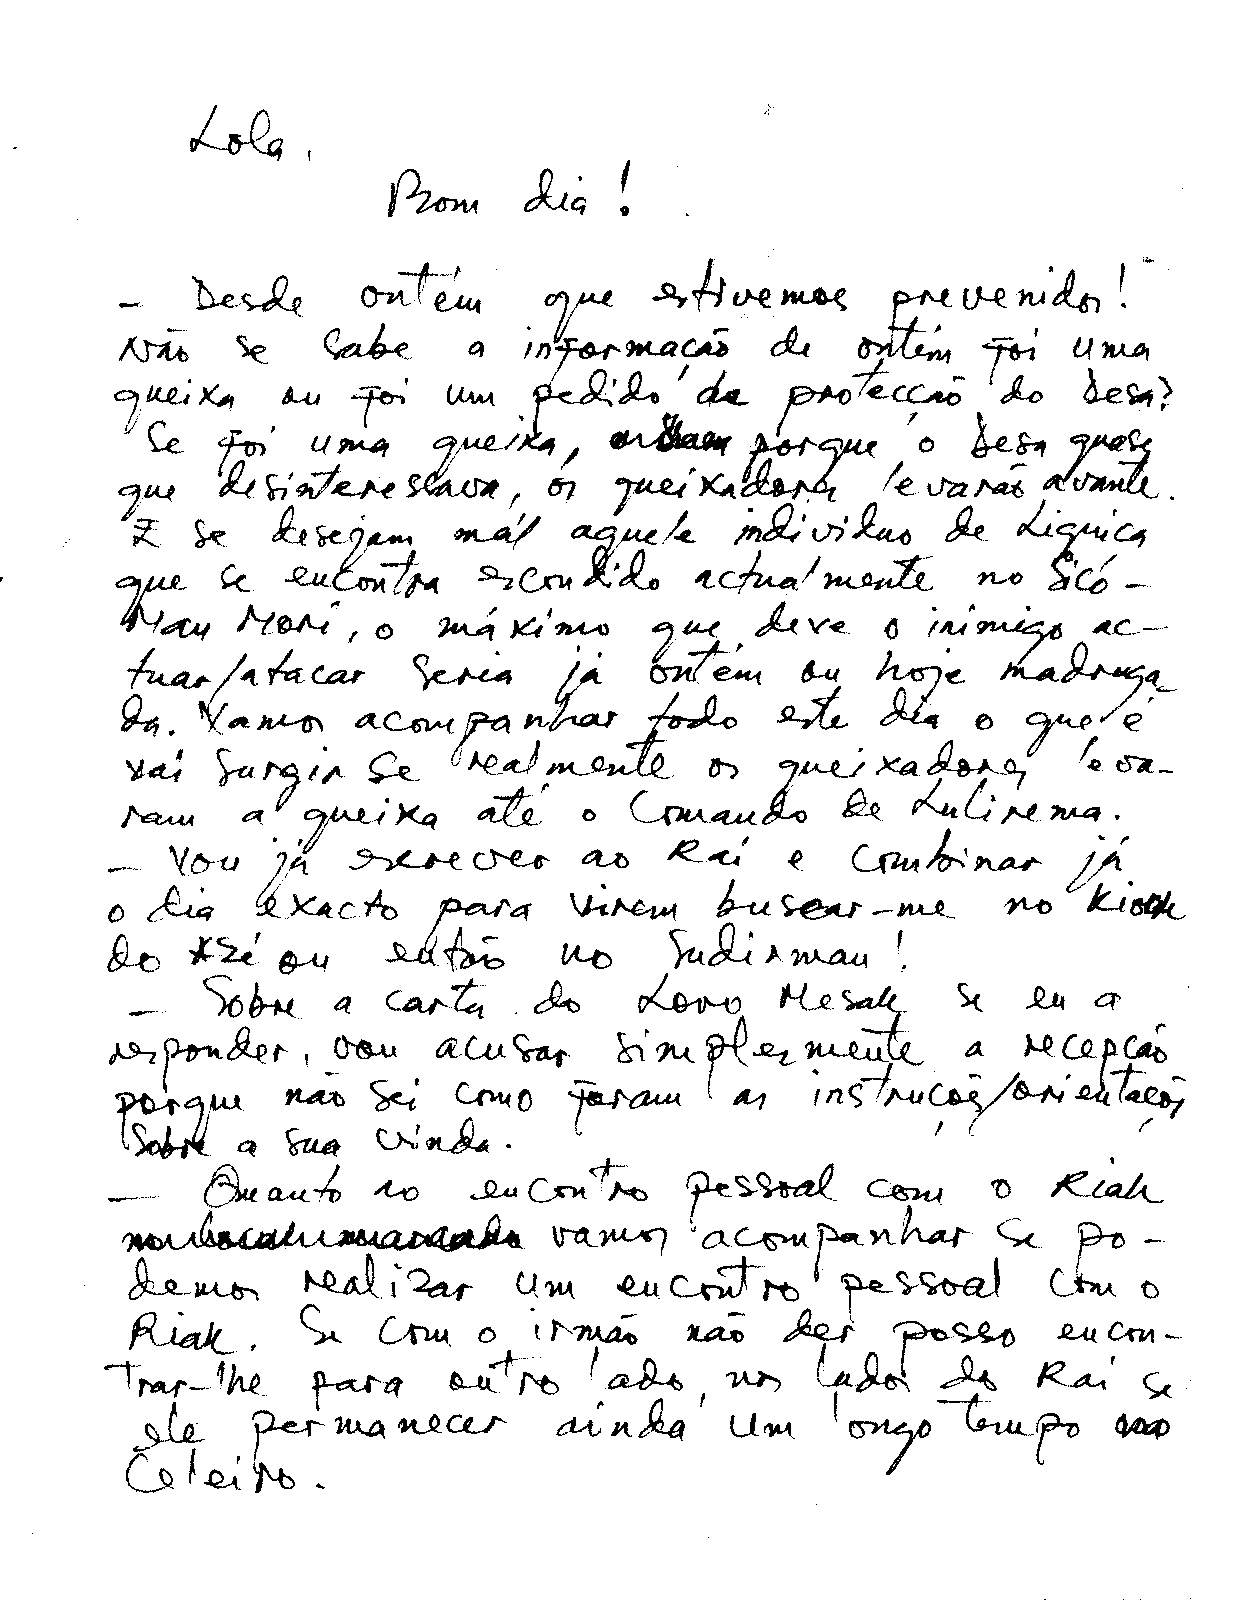 Lola,
Bom dia!
- Desde ontém que estivemos prevenidos!
Não se sabe a informação de ontém foi uma
queixa ou foi um pedido de protecção do Desa?
Se foi uma queixa, porque o Desa quase
que desinteressava, os queixadores levarão avante.
E se desejam mál aquele individuo de Liquiça
que se encontra escondido actualmente no Sicó-
Mau Mori, o máximo que deve o inimigo ac-
tuar/atacar seria já ontém ou hoje madruga-
da. Vamos acompanhar todo este dia o que é
vai surgir se realmente os queixadores leva-
ram a queixa até o Comando de Lulirema.
- Vou já escrever ao Raí e combinar já
o dia exacto para virem buscar-me no
do ou então no Sudirman!
- Sobre a carta do Lovo Mesak se eu a
responder, vou acusar simplesmente a recepção
porque não sei como foram as instruções/orientações
sobre a sua vinda.
- Quanto ao encontro pessoal com o Riak
vamos acompanhar se po-
demos realizar um encontro pessoal com o
Riak. Se com o irmão não der posso encon-
trar-lhe para outro lado, nos lados do Raí se
ele permanecer ainda um longo tempo no
Celeiro.